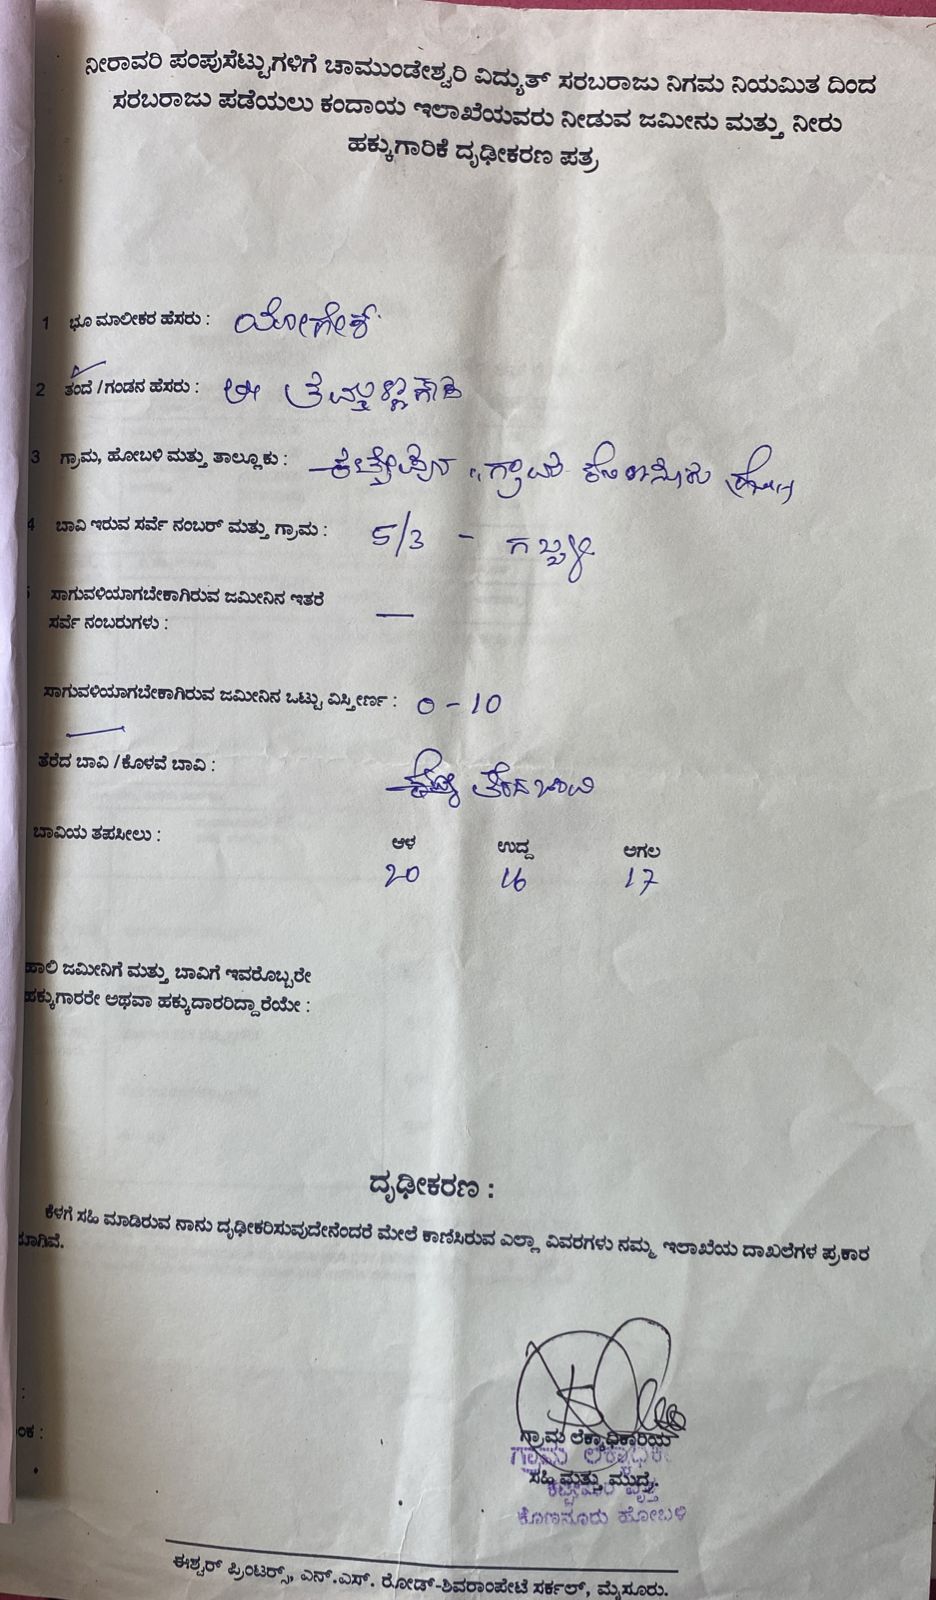 ನೀರಾವರಿ ಪಂಪುಸೆಟ್ಟುಗಳಿಗೆ ಚಾಮುಂಡೇಶ್ವರಿ ವಿದ್ಯುತ್ ಸರಬರಾಜು ನಿಗಮ ನಿಯಮಿತ ದಿಂದ
ಸರಬರಾಜು ಪಡೆಯಲು ಕಂದಾಯ ಇಲಾಖೆಯವರು ನೀಡುವ ಜಮೀನು ಮತ್ತು ನೀರು
ಹಕ್ಕುಗಾರಿಕೆ ದೃಢೀಕರಣ ಪತ್ರ
1 ಭೂ ಮಾಲೀಕರ ಹೆಸರು : ಯೋಗೇಶ್
2 ತಂದೆ / ಗಂಡನ ಹೆಸರು :
3 ಗ್ರಾಮ, ಹೋಬಳಿ ಮತ್ತು ತಾಲ್ಲೂಕು : ಗ್ರಾಮ
4 ಬಾವಿ ಇರುವ ಸರ್ವೆ ನಂಬರ್ ಮತ್ತು ಗ್ರಾಮ : 5/3 -
ಸಾಗುವಳಿಯಾಗಬೇಕಾಗಿರುವ ಜಮೀನಿನ ಇತರೆ
ಸರ್ವೆ ನಂಬರುಗಳು : —
ಸಾಗುವಳಿಯಾಗಬೇಕಾಗಿರುವ ಜಮೀನಿನ ಒಟ್ಟು ವಿಸ್ತೀರ್ಣ : 0 - 10
ತೆರೆದ ಬಾವಿ / ಕೊಳವೆ ಬಾವಿ : ತೆರೆದ ಬಾವಿ
ಬಾವಿಯ ತಪಸೀಲು : ಆಳ ಉದ್ದ ಅಗಲ
20 16 17
ಹಾಲಿ ಜಮೀನಿಗೆ ಮತ್ತು ಬಾವಿಗೆ ಇವರೊಬ್ಬರೇ
ಹಕ್ಕುಗಾರರೇ ಅಥವಾ ಹಕ್ಕುದಾರರಿದ್ದಾರೆಯೇ :
ದೃಢೀಕರಣ :
ಕೆಳಗೆ ಸಹಿ ಮಾಡಿರುವ ನಾನು ದೃಢೀಕರಿಸುವುದೇನೆಂದರೆ ಮೇಲೆ ಕಾಣಿಸಿರುವ ಎಲ್ಲಾ ವಿವರಗಳು ನಮ್ಮ ಇಲಾಖೆಯ ದಾಖಲೆಗಳ ಪ್ರಕಾರ
ಗ್ರಾಮ ಲೆಕ್ಕಾಧಿಕಾರಿಯ
ಸಹಿ ಮತ್ತು ಮುದ್ರೆ.
ಕೊಣನೂರು ಹೋಬಳಿ
ಈಶ್ವರ್ ಪ್ರಿಂಟರ್ಸ್, ಎನ್.ಎಸ್. ರೋಡ್-ಶಿವರಾಂಪೇಟೆ ಸರ್ಕಲ್, ಮೈಸೂರು.